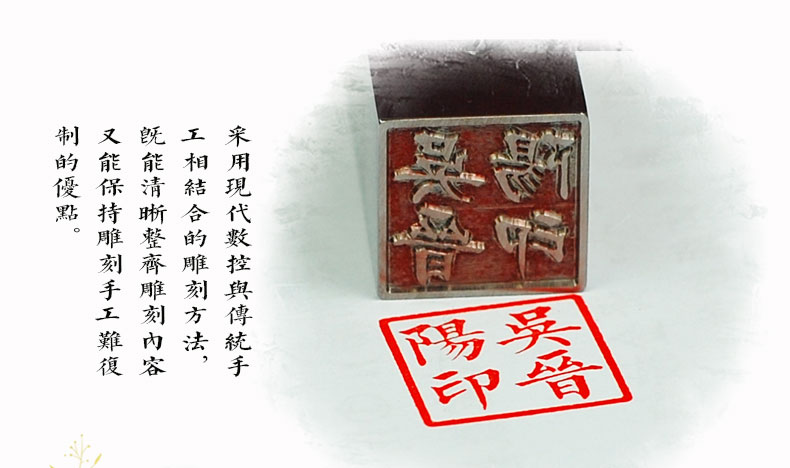 采用現代數控與傳統手
工相結合的雕刻方法，
既能清晰整齊雕刻內容
又能保持雕刻手工難復
制的優點。
吳晉
陽印